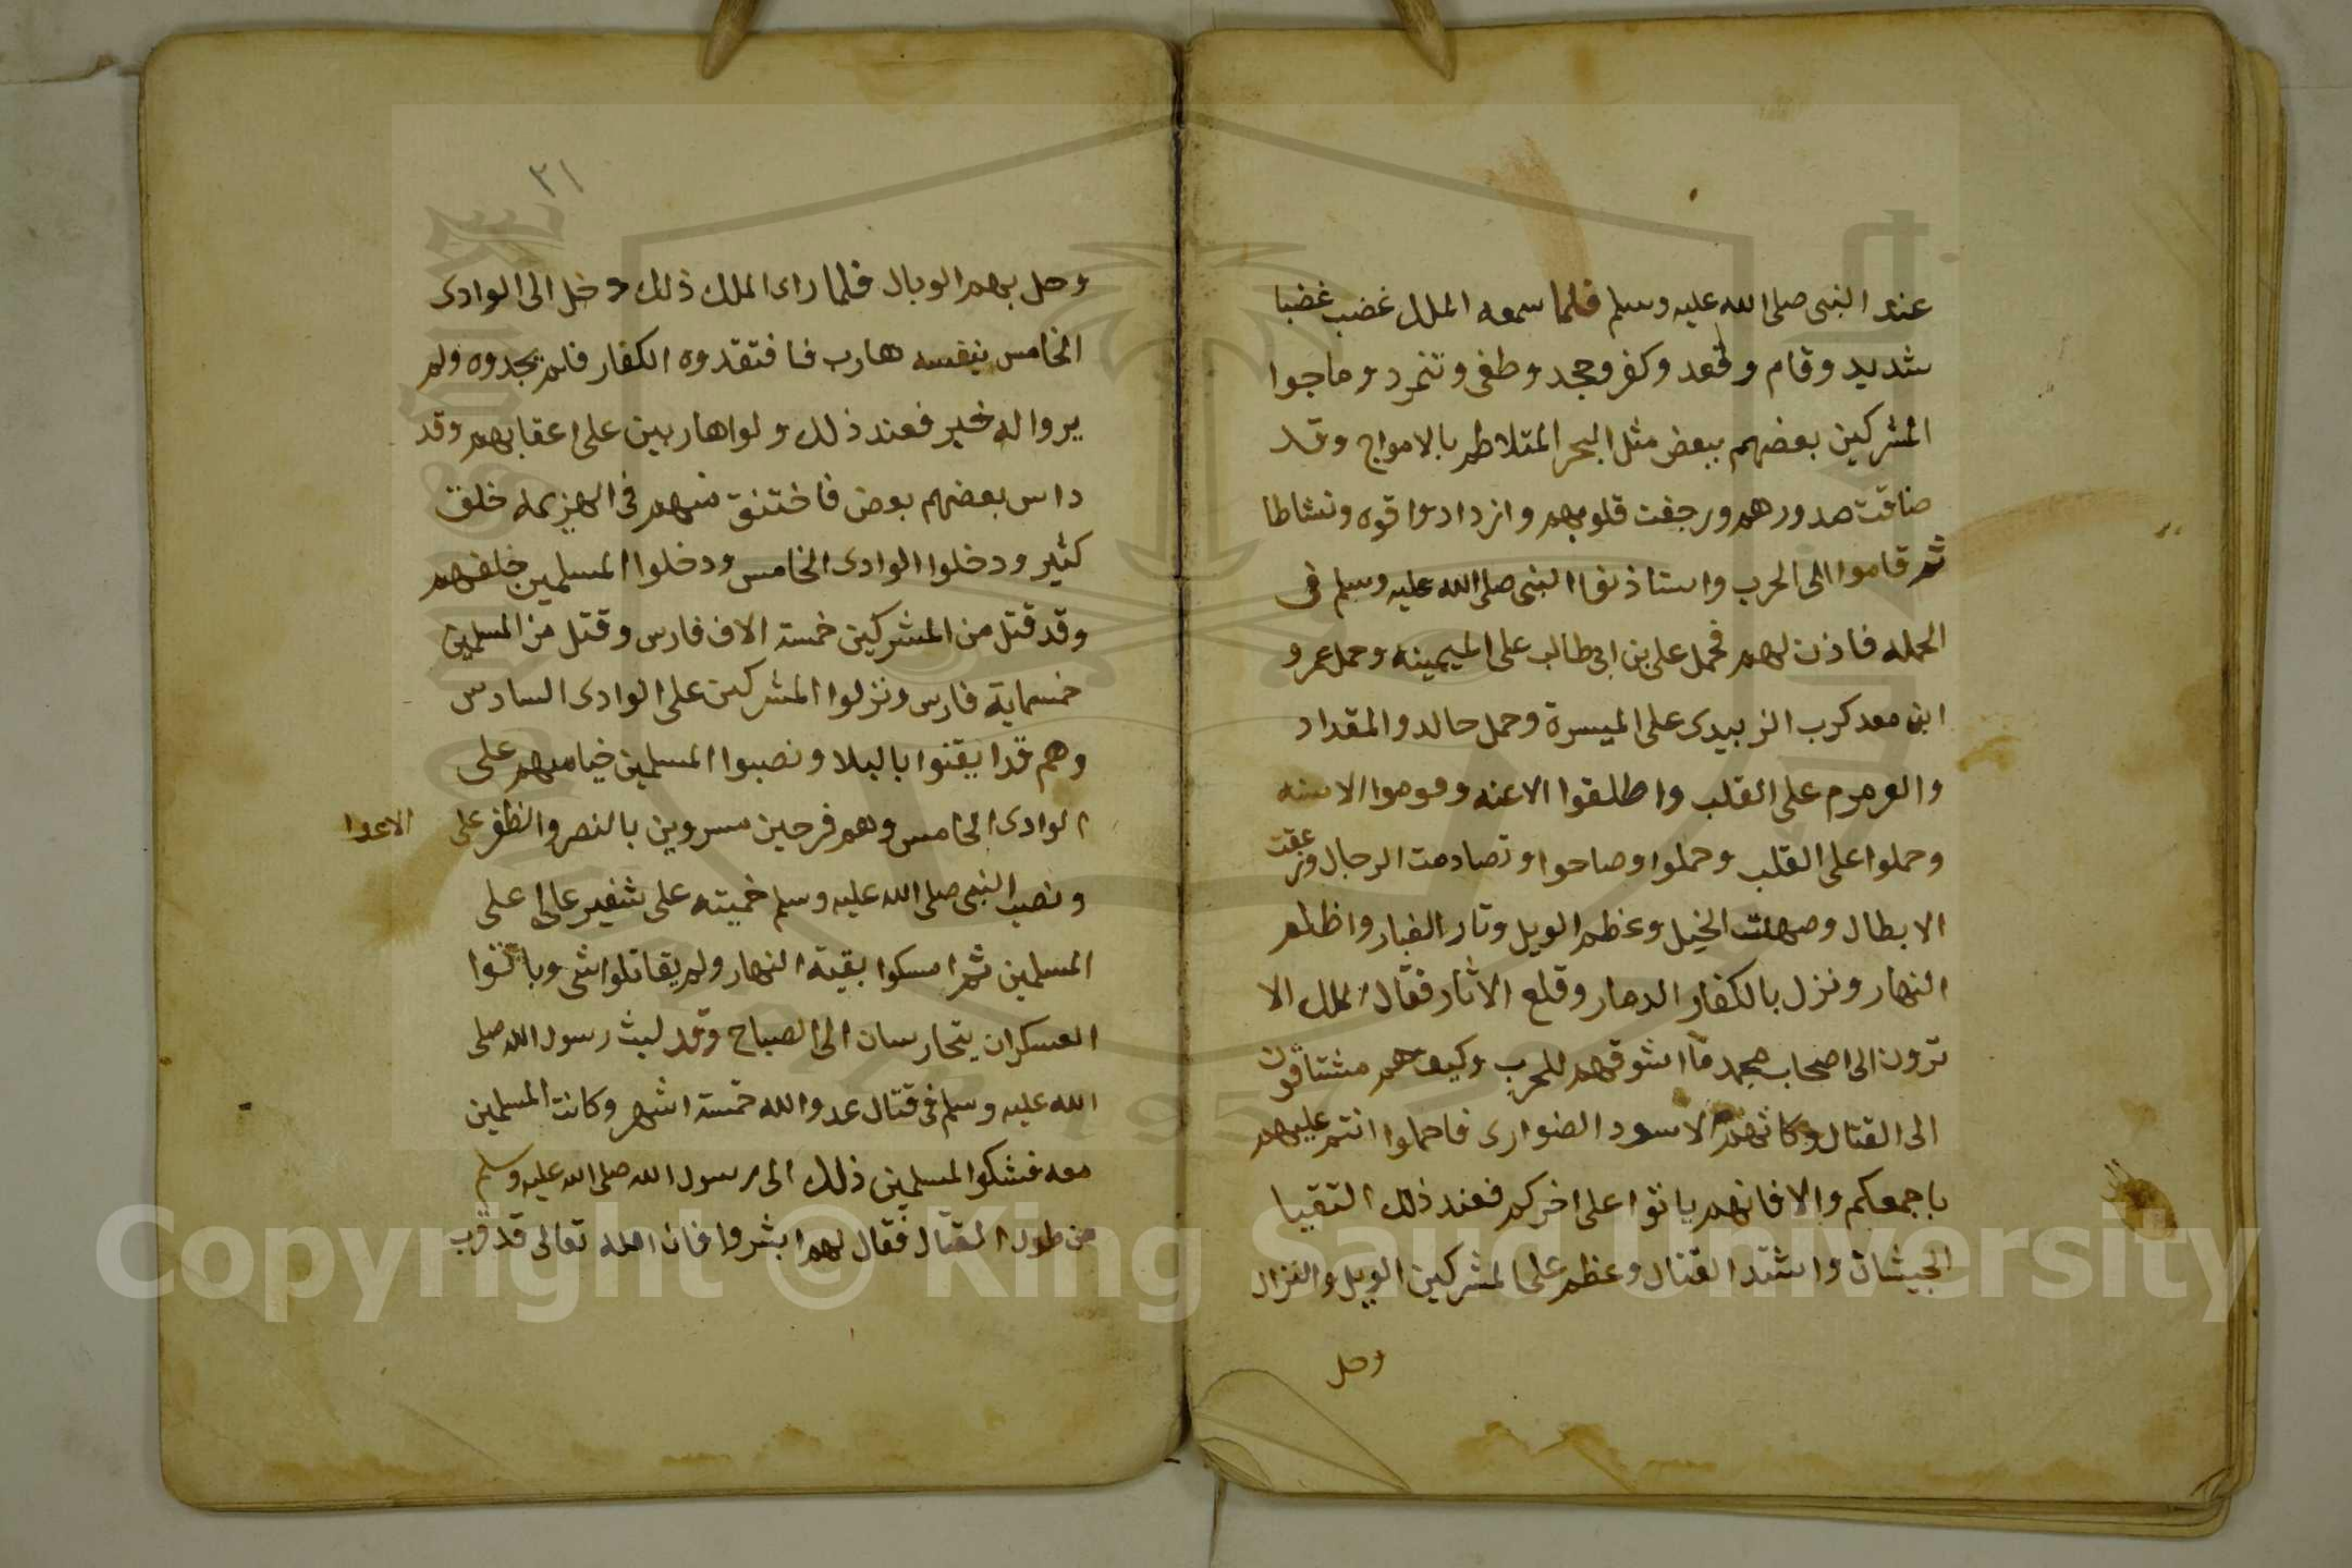 عند النبى صلى الله عليه وسلم فلما سمعه الملك غضب غضبا
شديد وقام وقعد وكفر وجحد وطغى وتنمرد وماجوا
المشركين بعضهم ببعض مثل البحر المتلاطم بالامواج وقد
ضاقت صدورهم ورجفت قلوبهم وازدادوا قوه ونشاطا
ثم قاموا الى الحرب واستاذنوا النبى صلى الله عليه وسلم فى
الحمله فاذن لهم فحمل على بن ابى طالب على الميمينه وحمل عمرو
ابن معد كرب الزبيدى على الميسرة وحمل خالد والمقداد
والعرمرم على القلب واطلقوا الاعنه وقوموا الاسنه
وحملوا على القلب وحملوا وصاحوا وتصادمت الرجال وزعقت
الابطال وصهلت الخيل وعظم الويل وتار الغبار واظلم
النهار ونزل بالكفار الدمار وقلع الاثار فقال الملك الا
ترون الى اصحاب محمد ما اشوقهم للحرب وكيف هم مشتاقون
الى القتال وكانهم الاسود الضوارى فاحملوا انتم عليهم
باجمعكم والا فانهم ياتوا على اخركم فعند ذلك التقيا
الجيشان واشتد القتال وعظم على المشركين الويل والنزال
وحل
٣١
وحل بهم الوبال فلما راى الملك ذلك دخل الى الوادى
الخامس بنفسه هارب فافتقدوه الكفار فلم يجدوه ولم
يروا له خبر فعند ذلك ولوا هاربين على اعقابهم وقد
داس بعضهم بعض فاختنق منهم فى الهزيمه خلق
كثير ودخلوا الوادى الخامس ودخلوا المسلمين خلفهم
وقد قتل من المشركين خمسة الاف فارس وقتل من المسلمين
خمسماية فارس ونزلوا المشركين على الوادى السادس
وهم قد ايقنوا بالبلا ونصبوا المسلمين خيامهم على
الوادى الخامس وهم فرحين مسروين بالنصر والظفر على الاعدا
ونصب النبى صلى الله عليه وسلم خميته على شفير عالى على
المسلمين ثم امسكوا بقية النهار ولم يقاتلوا شى وباتوا
العسكران يتحارسان الى الصباح وقد لبث رسول الله صلى
الله عليه وسلم فى قتال عدوا لله خمسة اشهر وكانت المسلمين
معه فشكوا المسلمين ذلك الى رسول الله صلى الله عليه وسلم
من طول القتال فقال لهم ابشروا فان الله تعالى قد قرب
Copyright © King Saud University
1957